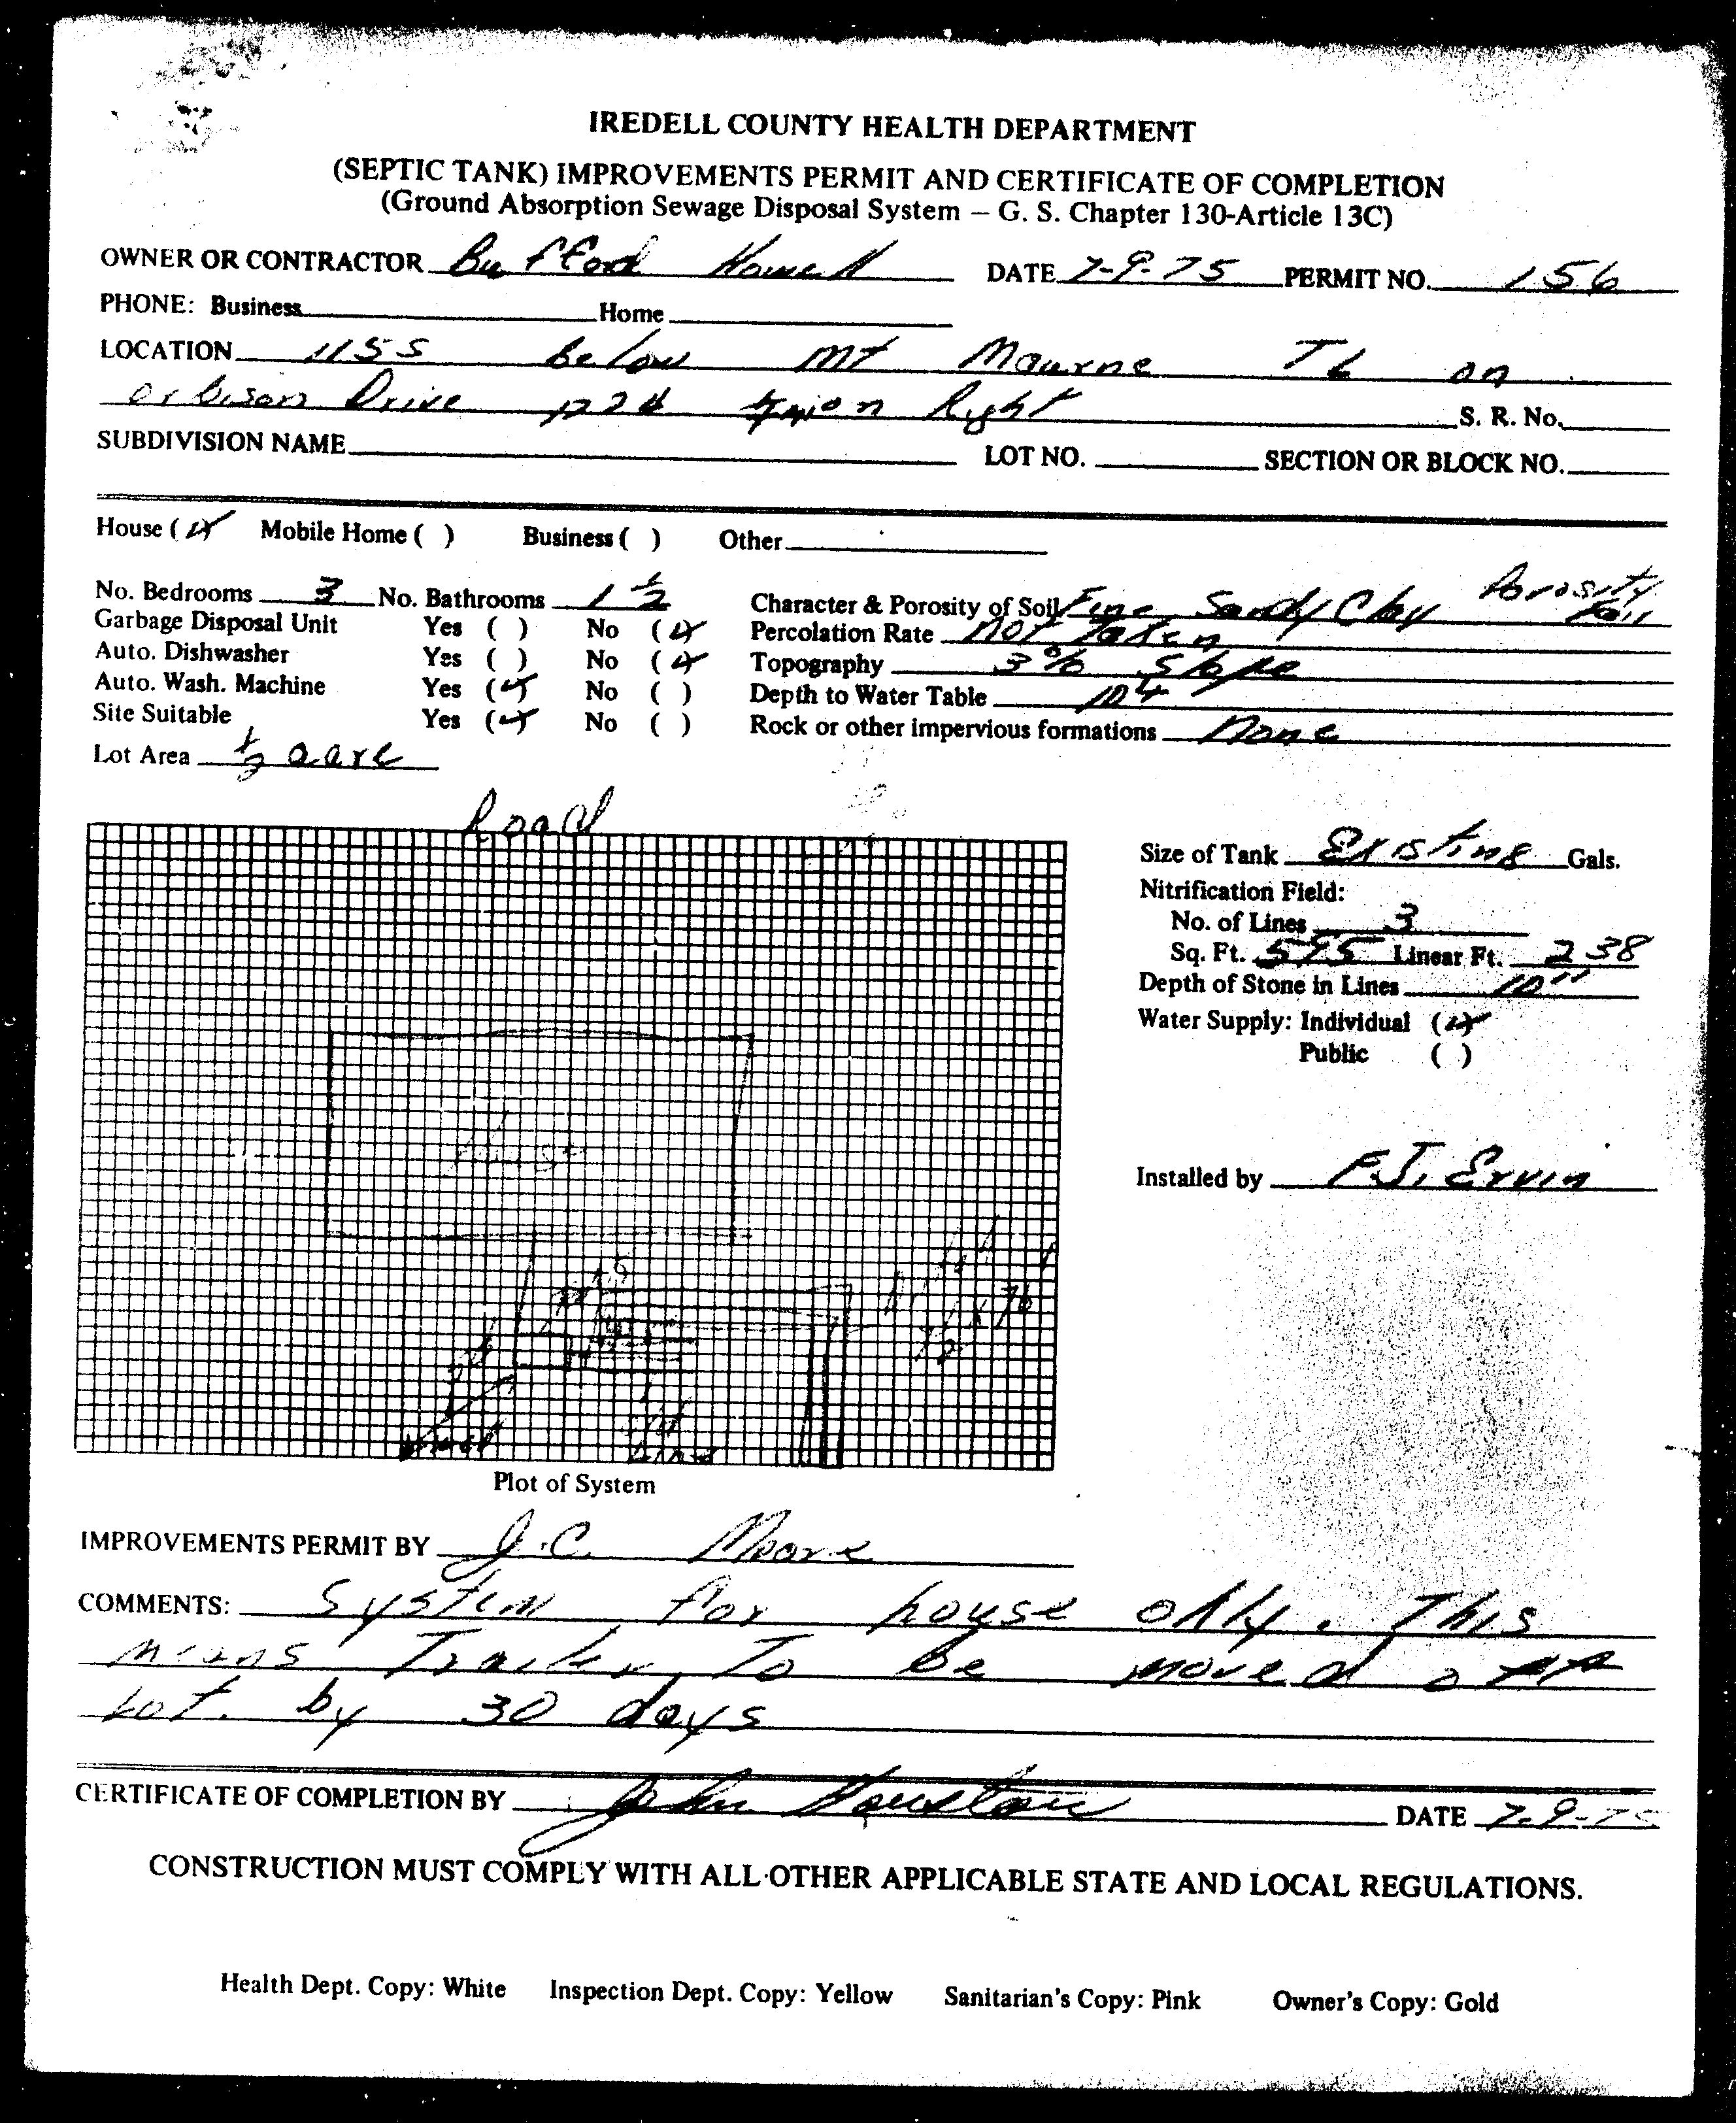 IREDELL COUNTY HEALTH DEPARTMENT
(SEPTIC TANK) IMPROVEMENTS PERMIT AND CERTIFICATE OF COMPLETION
(Ground Absorption Sewage Disposal System – G. S. Chapter 130-Article 13C)
OWNER OR CONTRACTOR DATE 7-9-75 PERMIT NO. 156
PHONE: Business Home
LOCATION 115 S below Mt Mourne TL on
Orbison Drive on Right S. R. No.
SUBDIVISION NAME LOT NO. SECTION OR BLOCK NO.
House (✓) Mobile Home ( ) Business ( ) Other
No. Bedrooms 3 No. Bathrooms 1 1/2 Character & Porosity of Soil Fine Sandy Clay Porosity
Garbage Disposal Unit Yes ( ) No (✓) Percolation Rate not taken
Auto. Dishwasher Yes ( ) No (✓) Topography 3% slope
Auto. Wash. Machine Yes (✓) No ( ) Depth to Water Table
Site Suitable Yes (✓) No ( ) Rock or other impervious formations none
Lot Area 1/2 acre
Road
Size of Tank Existing Gals.
Nitrification Field:
No. of Lines 3
Sq. Ft. 595 Linear Ft. 238
Depth of Stone in Lines 10"
Water Supply: Individual (✓)
Public ( )
Installed by F.J. Ervin
Plot of System
IMPROVEMENTS PERMIT BY J.C. Moore
COMMENTS: System for house only. This
means Trailer To be moved off
Lot. by 30 days
CERTIFICATE OF COMPLETION BY John Houston DATE 7-9-75
CONSTRUCTION MUST COMPLY WITH ALL OTHER APPLICABLE STATE AND LOCAL REGULATIONS.
Health Dept. Copy: White Inspection Dept. Copy: Yellow Sanitarian's Copy: Pink Owner's Copy: Gold